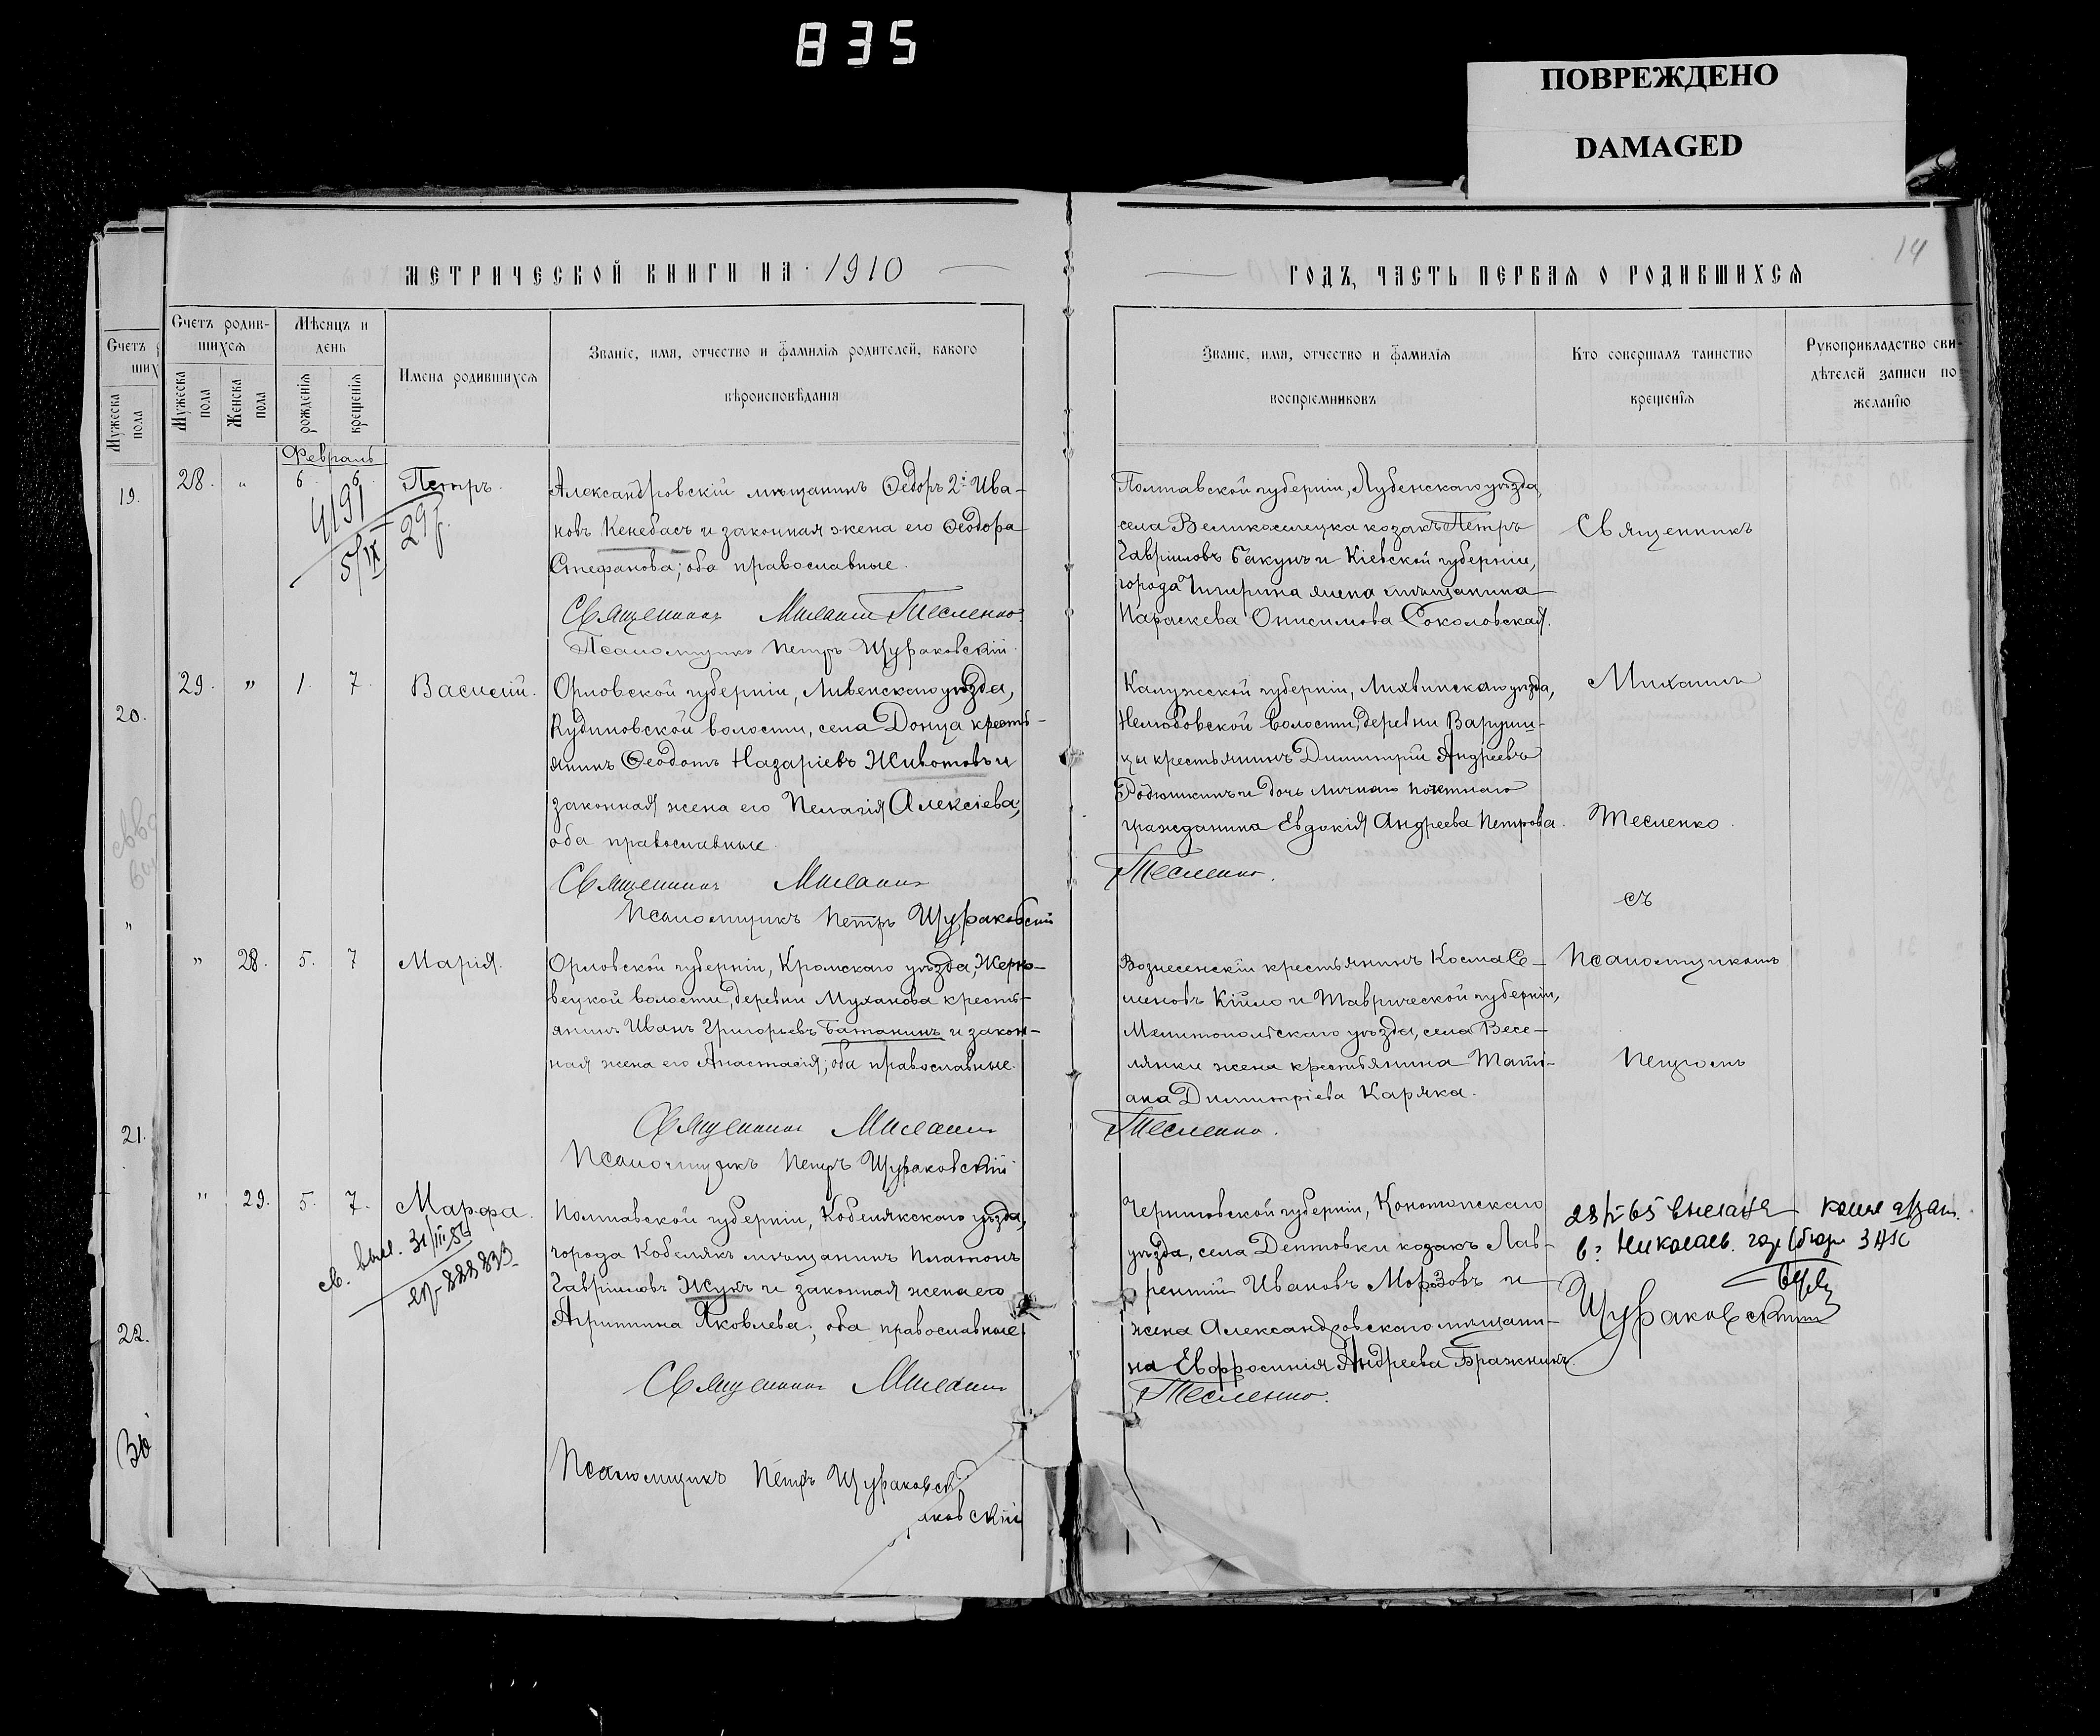 835
ПОВРЕЖДЕНО
DAMAGED
14
МЕТРИЧЕСКОЙ КНИГИ НА 1910
ГОДЪ, ЧАСТЬ ПЕРВАЯ О РОДИВШИХСЯ
Счетъ родив-
шихся
Мѣсяцъ и
день
Мужеска
пола
Женска
пола
рожденія
крещенія
Имена родившихся
Званіе, имя, отчество и фамилія родителей, какого
вѣроисповѣданія
Званіе, имя, отчество и фамилія
воспріемниковъ
Кто совершалъ таинство
крещенія
Рукоприкладство сви-
дѣтелей записи по
желанію
Счетъ
ших
Мужеска
пола
19.
20.
21.
22.
Февраль
28. " 6. 6. Петръ.
4191
5/IX
Александровскій мѣщанинъ Ѳедоръ 2й Ива-
новъ Кенебасъ и законная жена его Ѳеодора
Стефанова; оба православные.
Священникъ Михаилъ Тесленко.
Псаломщикъ Петръ Щураковскій.
Полтавской губерніи, Лубенскаго уѣзда,
села козакъ Петръ
Гавріиловъ Бакунъ и Кіевской губерніи,
города Чигирина жена мѣщанина
Параскева Онисимова Соколовская.
Священникъ
29. " 1. 7. Василій.
Орловской губерніи, Ливенскаго уѣзда,
Кудиновской волости, села Донца кресть-
янинъ Ѳеодотъ Назаріевъ Животовъ и
законная жена его Пелагія Алексіева;
оба православные.
Священникъ Михаилъ
Псаломщикъ Петръ Щураковскій
Калужской губерніи, Лихвинскаго уѣзда,
Нелюбовской волости, деревни Варуши-
цы крестьянинъ Димитрій Андреевъ
Родюшкинъ и дочь личнаго почетнаго
гражданина Евдокія Андреева Петрова.
Тесленко.
Михаилъ
Тесленко.
съ
" 28. 5. 7 Марія.
Орловской губерніи, Кромскаго уѣзда, Жерно-
вецкой волости, деревни Муханова кресть-
янинъ Иванъ Григорьевъ Батанинъ и закон-
ная жена его Анастасія; оба православные.
Священникъ Михаилъ
Псаломщикъ Петръ Щураковскій
Вознесенскій крестьянинъ Косма Се-
меновъ Кійло и Таврической губерніи,
Мелитопольскаго уѣзда, села Весе-
лянки жена крестьянина Тати-
ана Димитріева Каряка.
Тесленко.
Псаломщикомъ
Петромъ
" 29. 5. 7. Марфа.
св. выс. 31/III 56
Полтавской губерніи, Кобелякскаго уѣзда,
города Кобелякъ мѣщанинъ Платонъ
Гавріиловъ Жукъ и законная жена его
Агриппина Яковлева; оба православные.
Священникъ Михаилъ
Псаломщикъ Петръ Щураковскій
аковскій
Черниговской губерніи, Конотопскаго
уѣзда, села Дептовки козакъ Лав-
рентій Ивановъ Морозовъ и
жена Александровскаго мѣщани-
на Евфросинія Андреева Бражникъ.
Тесленко.
выслана
в г. Николаев. ЗАГС
Щураковскимъ